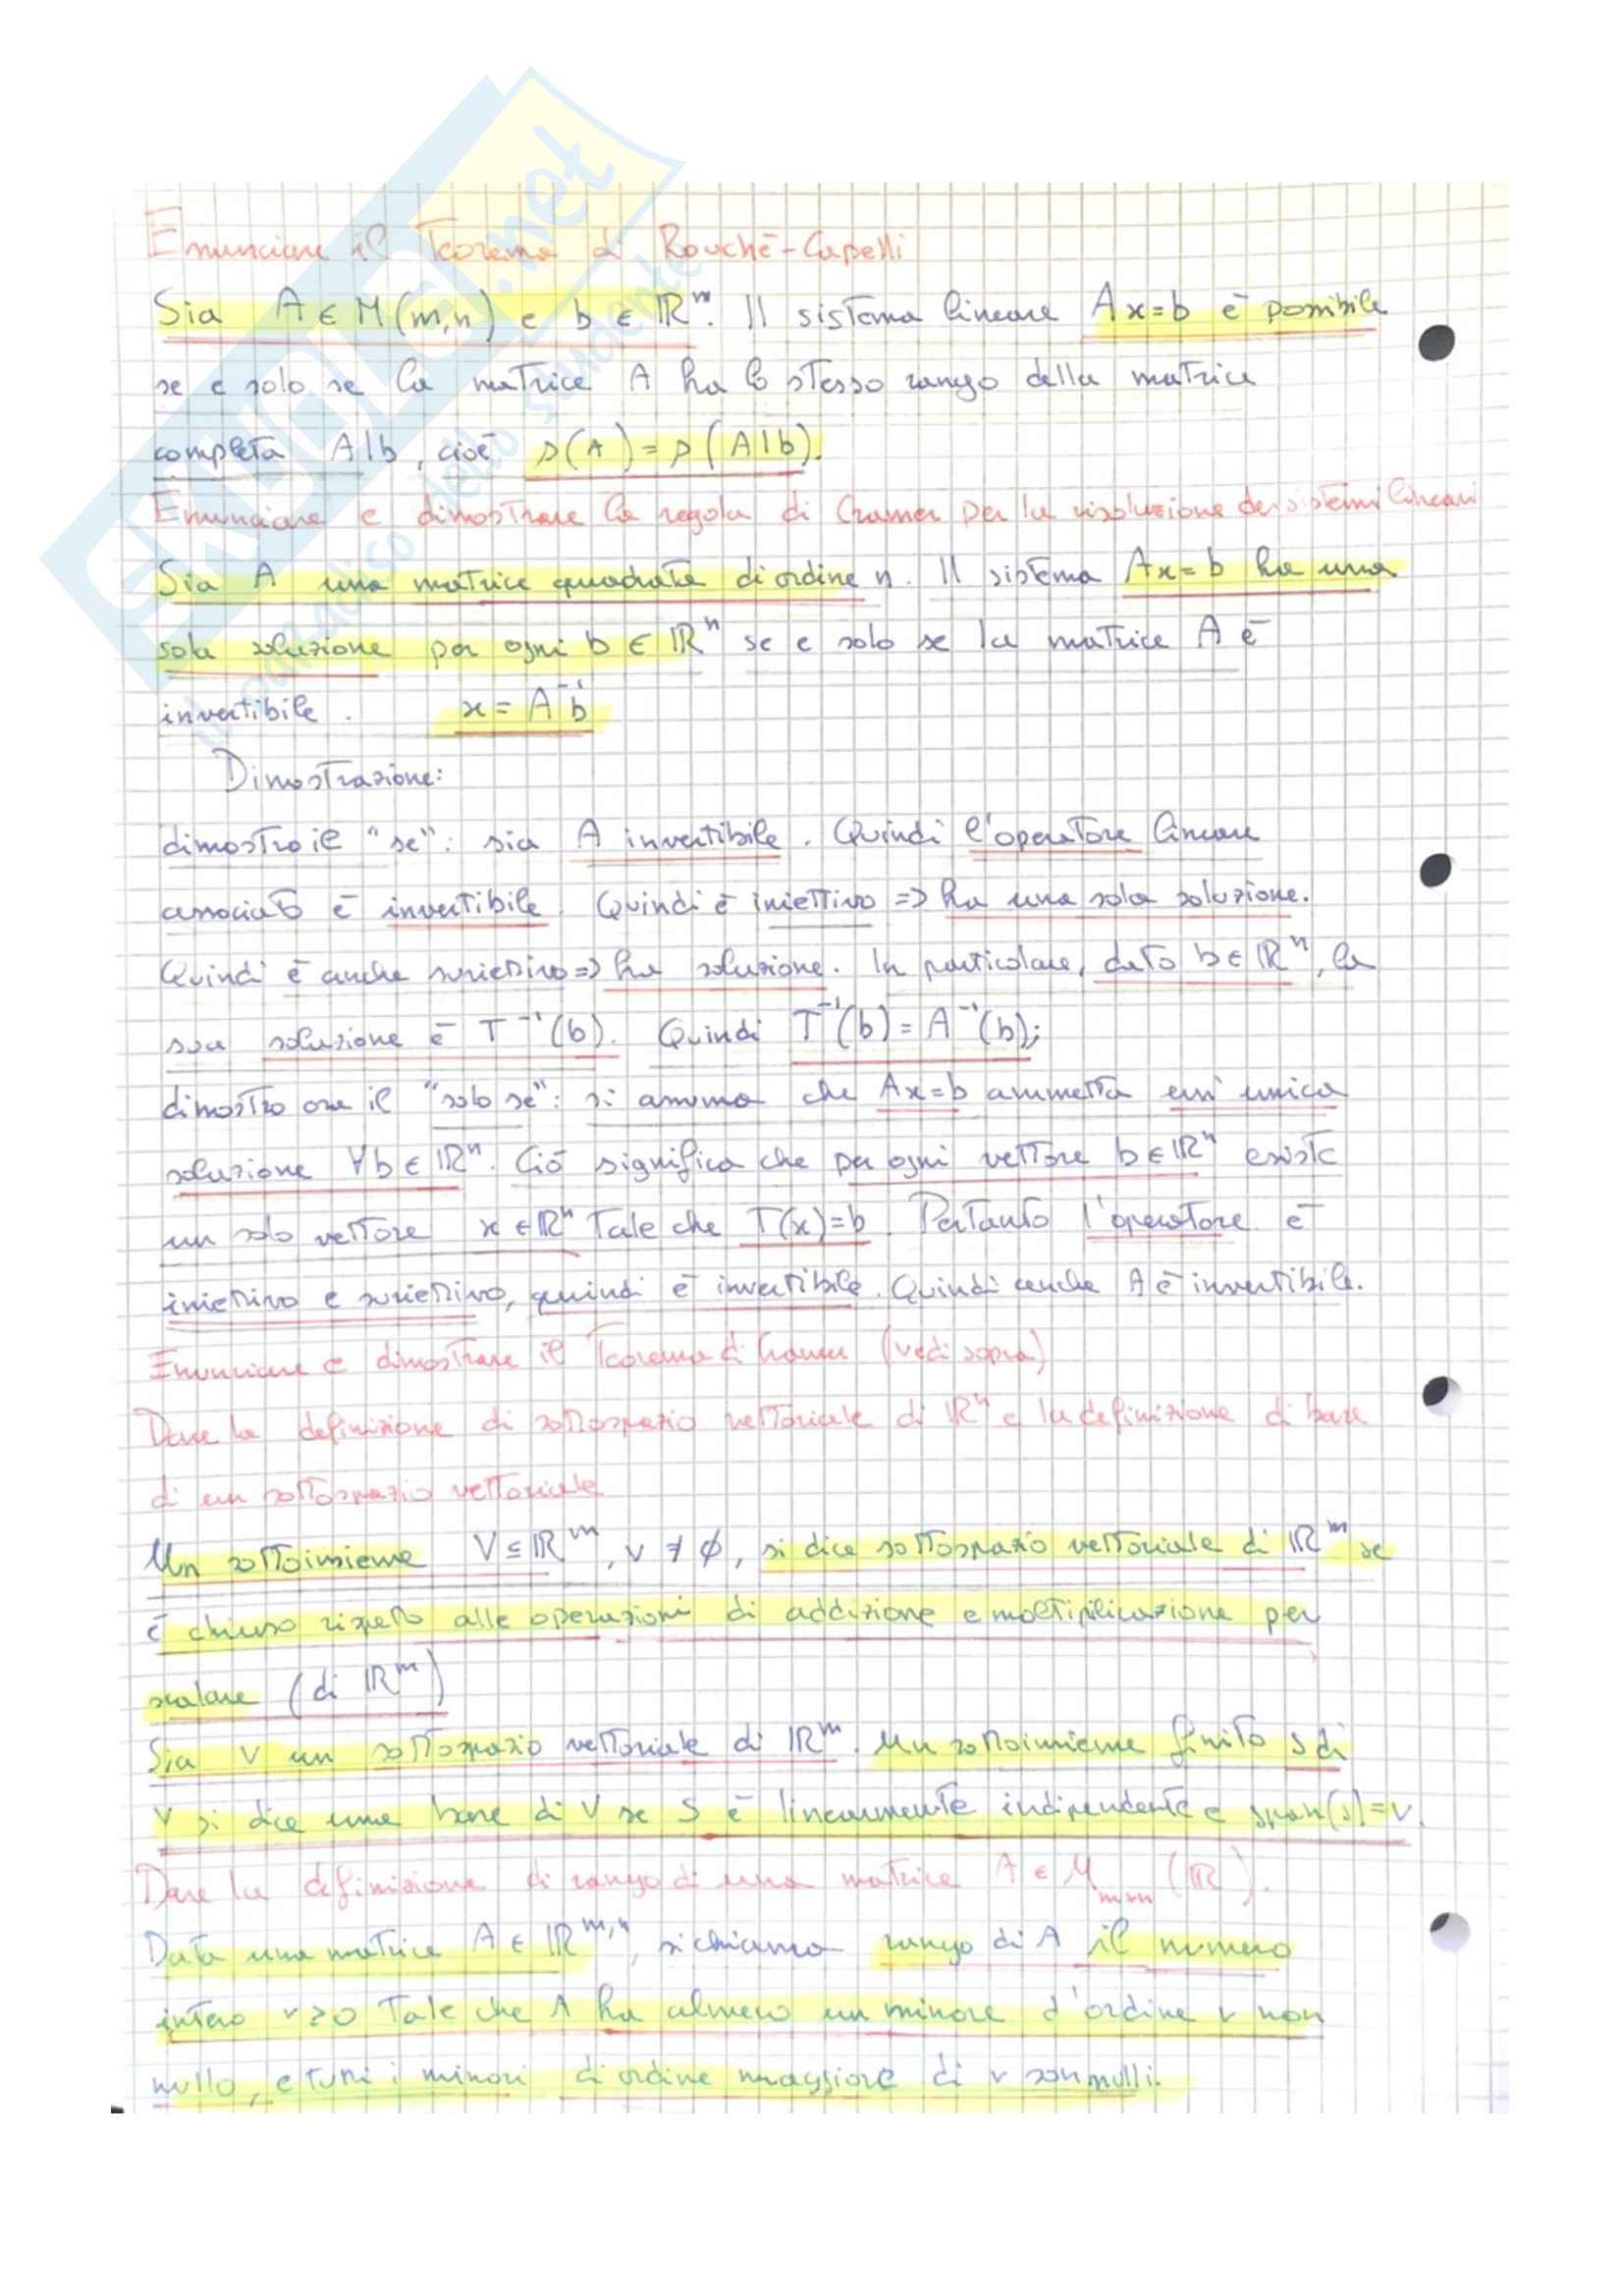 SKUOLA.net
il paradiso dello studente
Enunciare il Teorema di Rouchè-Capelli
Sia A ∈ M(m,n) e b ∈ ℝᵐ. Il sistema lineare Ax=b è possibile
se e solo se la matrice A ha lo stesso rango della matrice
completa A|b, cioè ρ(A)=ρ(A|b).
Enunciare e dimostrare la regola di Cramer per la risoluzione dei sistemi lineari
Sia A una matrice quadrata di ordine n. Il sistema Ax=b ha una
sola soluzione per ogni b ∈ ℝⁿ se e solo se la matrice A è
invertibile. x = A⁻¹b
Dimostrazione:
dimostro il "se": sia A invertibile. Quindi l'operatore lineare
associato è invertibile. Quindi è iniettivo => ha una sola soluzione.
Quindi è anche suriettivo => ha soluzione. In particolare, dato b ∈ ℝⁿ, la
sua soluzione è T⁻¹(b). Quindi T⁻¹(b) = A⁻¹(b);
dimostro ora il "solo se": si assuma che Ax=b ammetta un'unica
soluzione ∀b ∈ ℝⁿ. Ciò significa che per ogni vettore b ∈ ℝⁿ esiste
un solo vettore x ∈ ℝⁿ tale che T(x)=b. Pertanto l'operatore è
iniettivo e suriettivo, quindi è invertibile. Quindi anche A è invertibile.
Enunciare e dimostrare il Teorema di Cramer (vedi sopra)
Dare la definizione di sottospazio vettoriale di ℝⁿ e la definizione di base
di un sottospazio vettoriale
Un sottoinsieme V ⊆ ℝᵐ, V ≠ ∅, si dice sottospazio vettoriale di ℝᵐ se
è chiuso rispetto alle operazioni di addizione e moltiplicazione per
scalare (di ℝᵐ)
Sia V un sottospazio vettoriale di ℝᵐ. Un sottoinsieme finito S di
V si dice una base di V se S è linearmente indipendente e span(S)=V.
Dare la definizione di rango di una matrice A ∈ Mₘₓₙ(ℝ).
Data una matrice A ∈ ℝᵐ,ⁿ, si chiama rango di A il numero
intero r≥0 tale che A ha almeno un minore d'ordine r non
nullo, e tutti i minori di ordine maggiore di r son nulli.